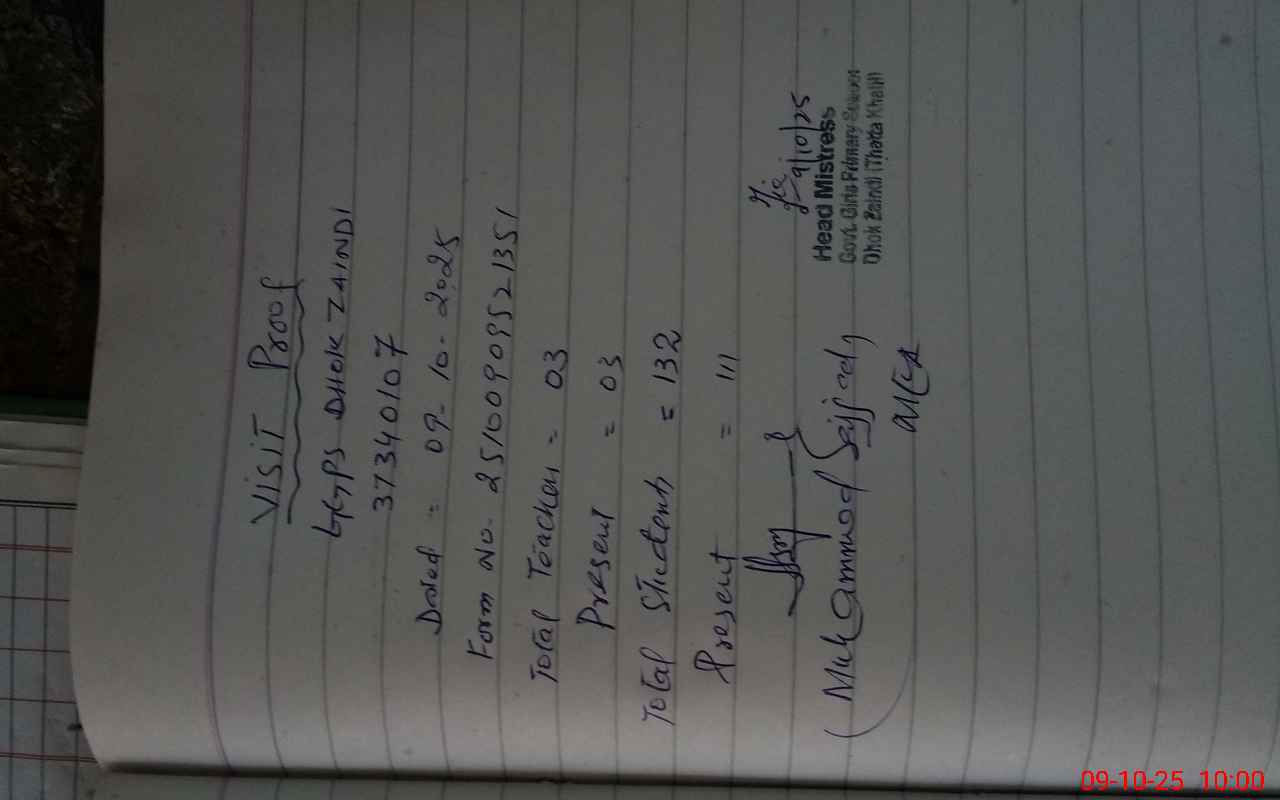 VISIT Proof
GGPS DHOK ZAINDI
37340107
Dated = 09-10-2025
Form No. 25100909521351
Total Teacher = 03
Present = 03
Total Students = 132
Present = 111
9/10/25
Head Mistress
Govt. Girls Primary School
Dhok Zaindi (Thatta Khalil)
(Muhammad Sajjad)
09-10-25 10:00